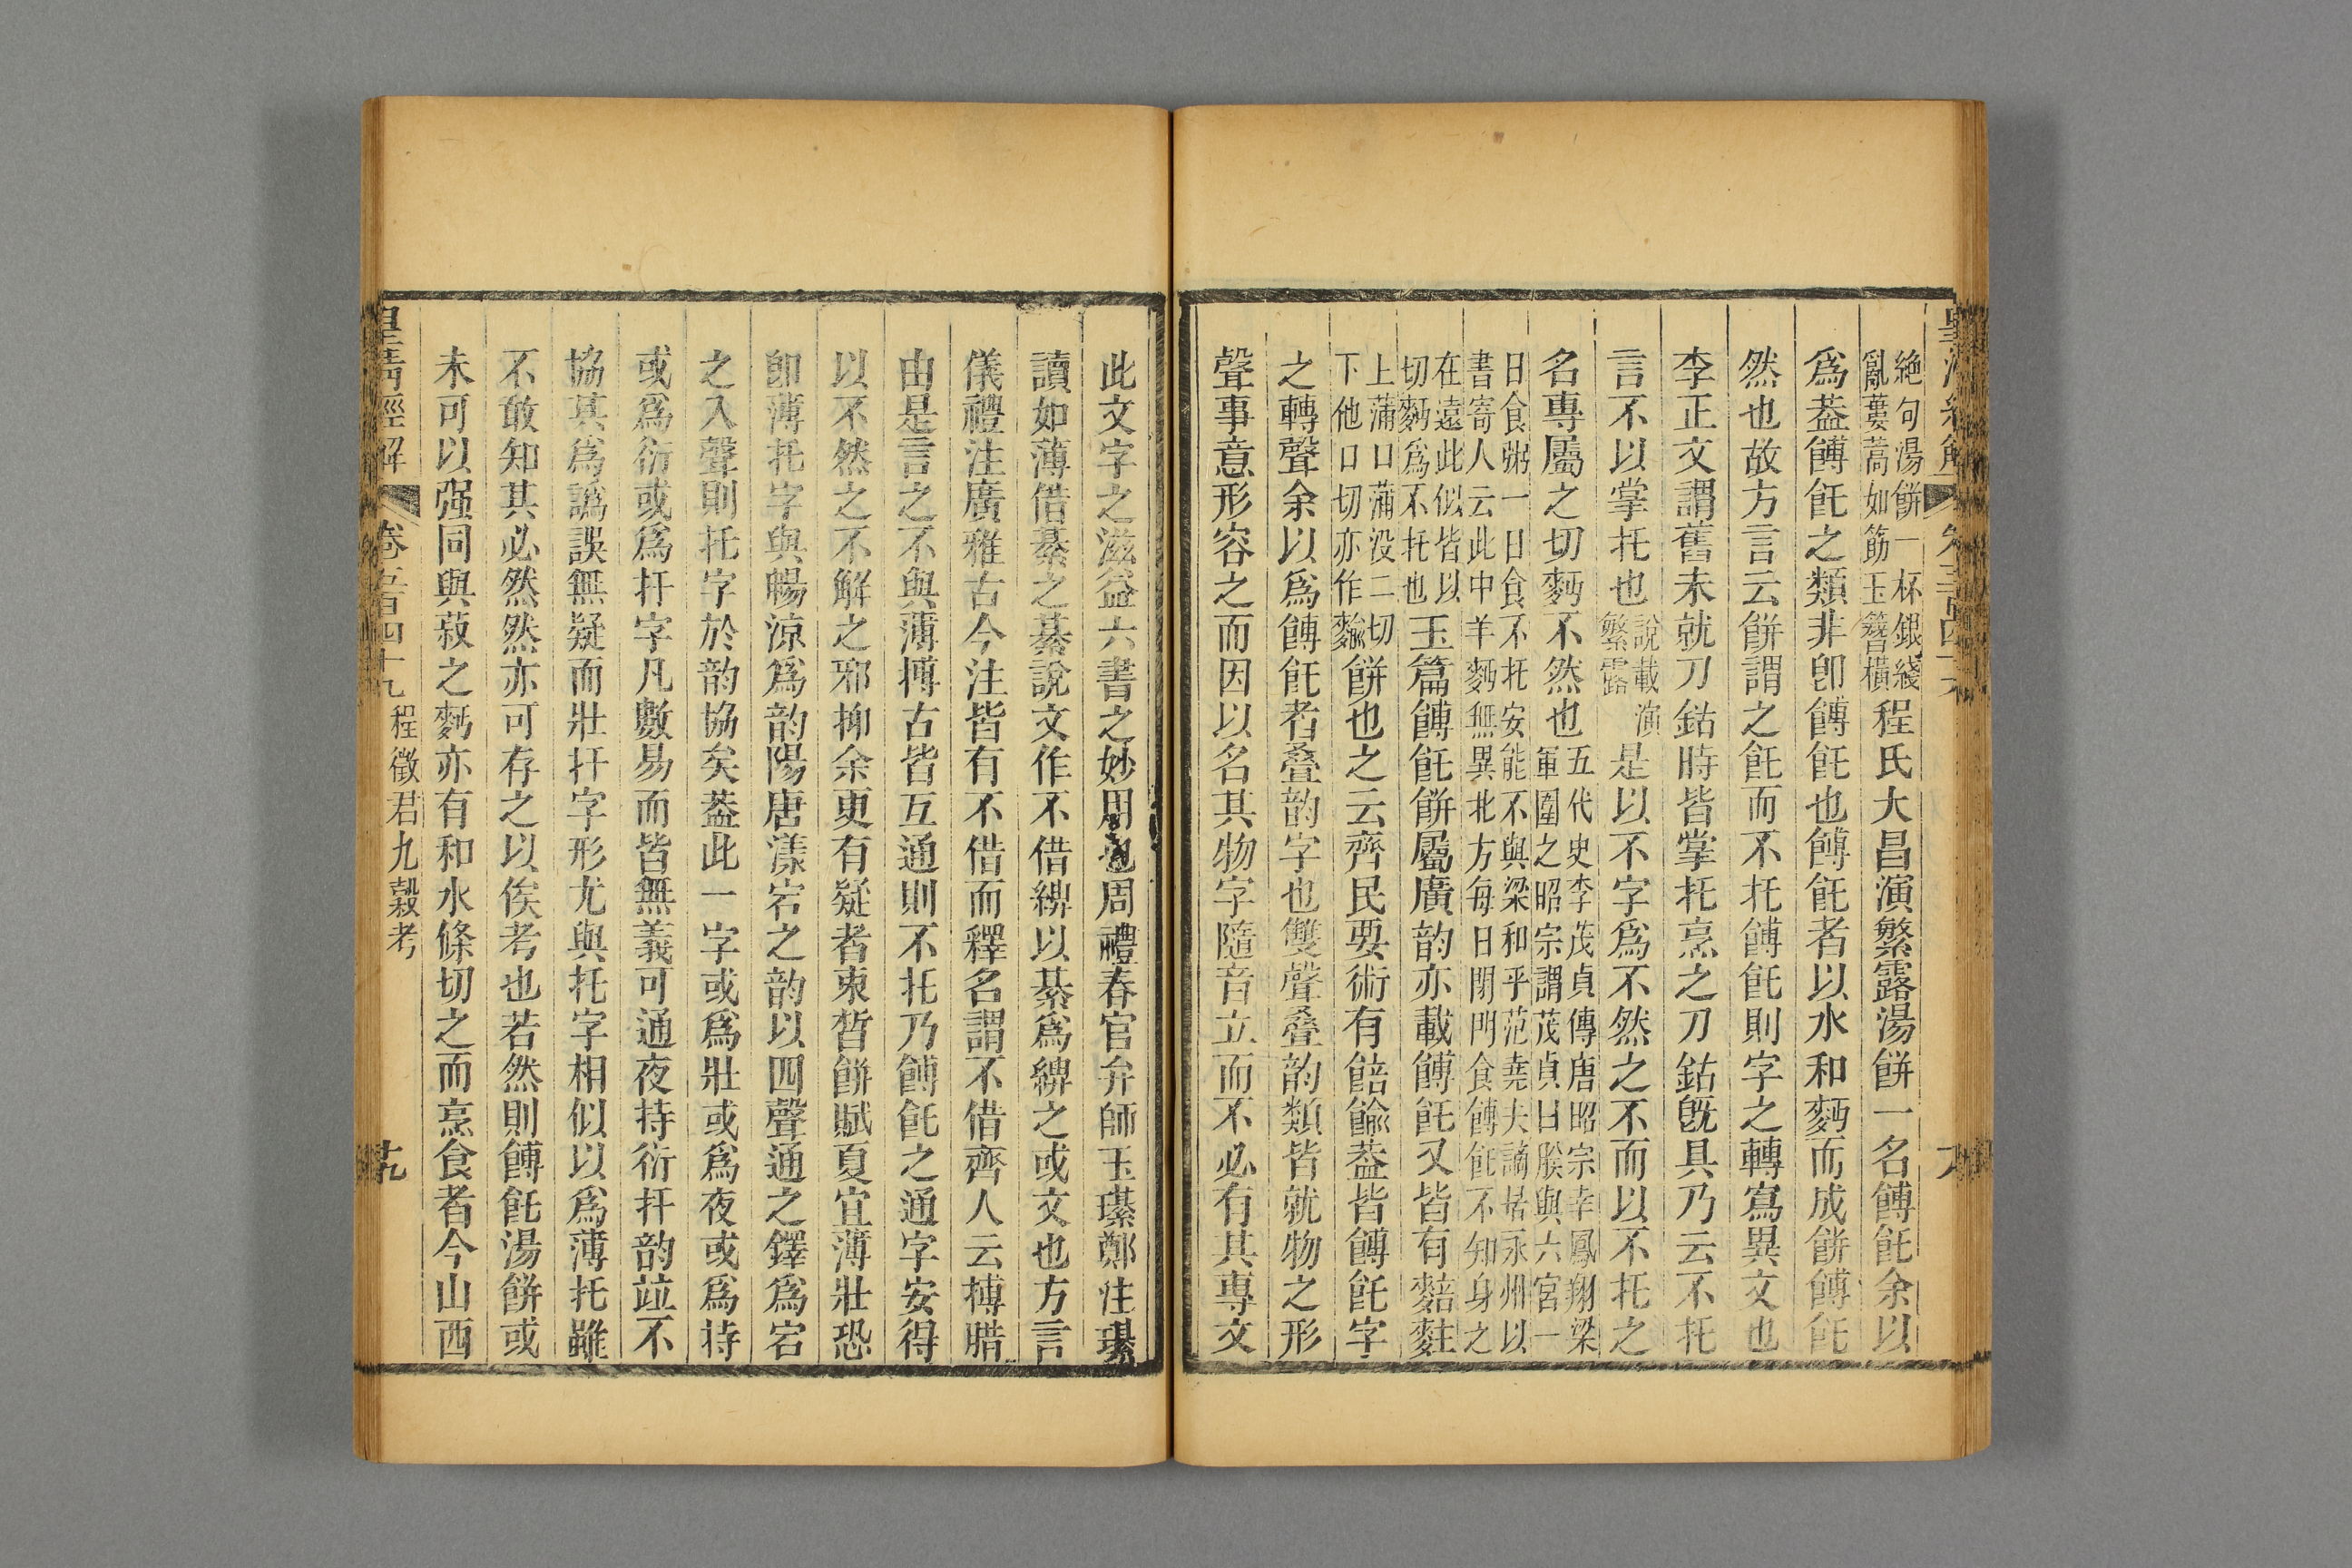 絶句湯餅一杯銀綫
亂蔞蒿如筯玉簪橫程氏大昌演繁露湯餅一名餺飥余以
爲葢餺飥之類非卽餺飥也餺飥者以水和麪而成餅餺飥
然也故方言云餅謂之飥而不托餺飥則字之轉寫異文也
李正文謂舊未就刀鈷時皆掌托烹之刀鈷旣具乃云不托
言不以掌托也說載演繁露是以不字爲不然之不而以不托之
名專屬之切麪不然也五代史李茂貞傳唐昭宗幸鳳翔梁軍圍之昭宗謂茂貞曰朕與六宮一
日食粥一日食不托安能不與梁和乎范堯夫謫居永州以
書寄人云此中羊麪無異北方每日閉門食餺飥不知身之
在遠此似皆以切麪爲不托也玉篇餺飥餅屬廣韵亦載餺飥又皆有䴺䴻
上蒲口蒲没二切下他口切亦作䵉餅也之云齊民要術有餢飳葢皆餺飥字
之轉聲余以爲餺飥者疊韵字也雙聲疊韵類皆就物之形
聲事意形容之而因以名其物字隨音立而不必有其專文
此文字之滋益六書之妙用也周禮春官弁師玉璂鄭注璂
讀如薄借綦之綦說文作不借綼以綦爲綼之或文也方言
儀禮注廣雅古今注皆有不借而釋名謂不借齊人云搏腊
由是言之不與薄搏古皆互通則不托乃餺飥之通字安得
以不然之不解之邪抑余更有疑者束晳餅賦夏宜薄壯恐
卽薄托字與暢涼爲韵陽唐漾宕之韵以四聲通之鐸爲宕
之入聲則托字於韵協矣葢此一字或爲壯或爲夜或爲持
或爲衍或爲扞字凡數易而皆無義可通夜持衍扞韵竝不
協其爲譌誤無疑而壯扞字形尤與托字相似以爲薄托雖
不敢知其必然然亦可存之以俟考也若然則餺飥湯餅或
未可以强同與菽之麪亦有和水條切之而烹食者今山西
皇清經解 卷五百四十九 程徵君九穀考 十九